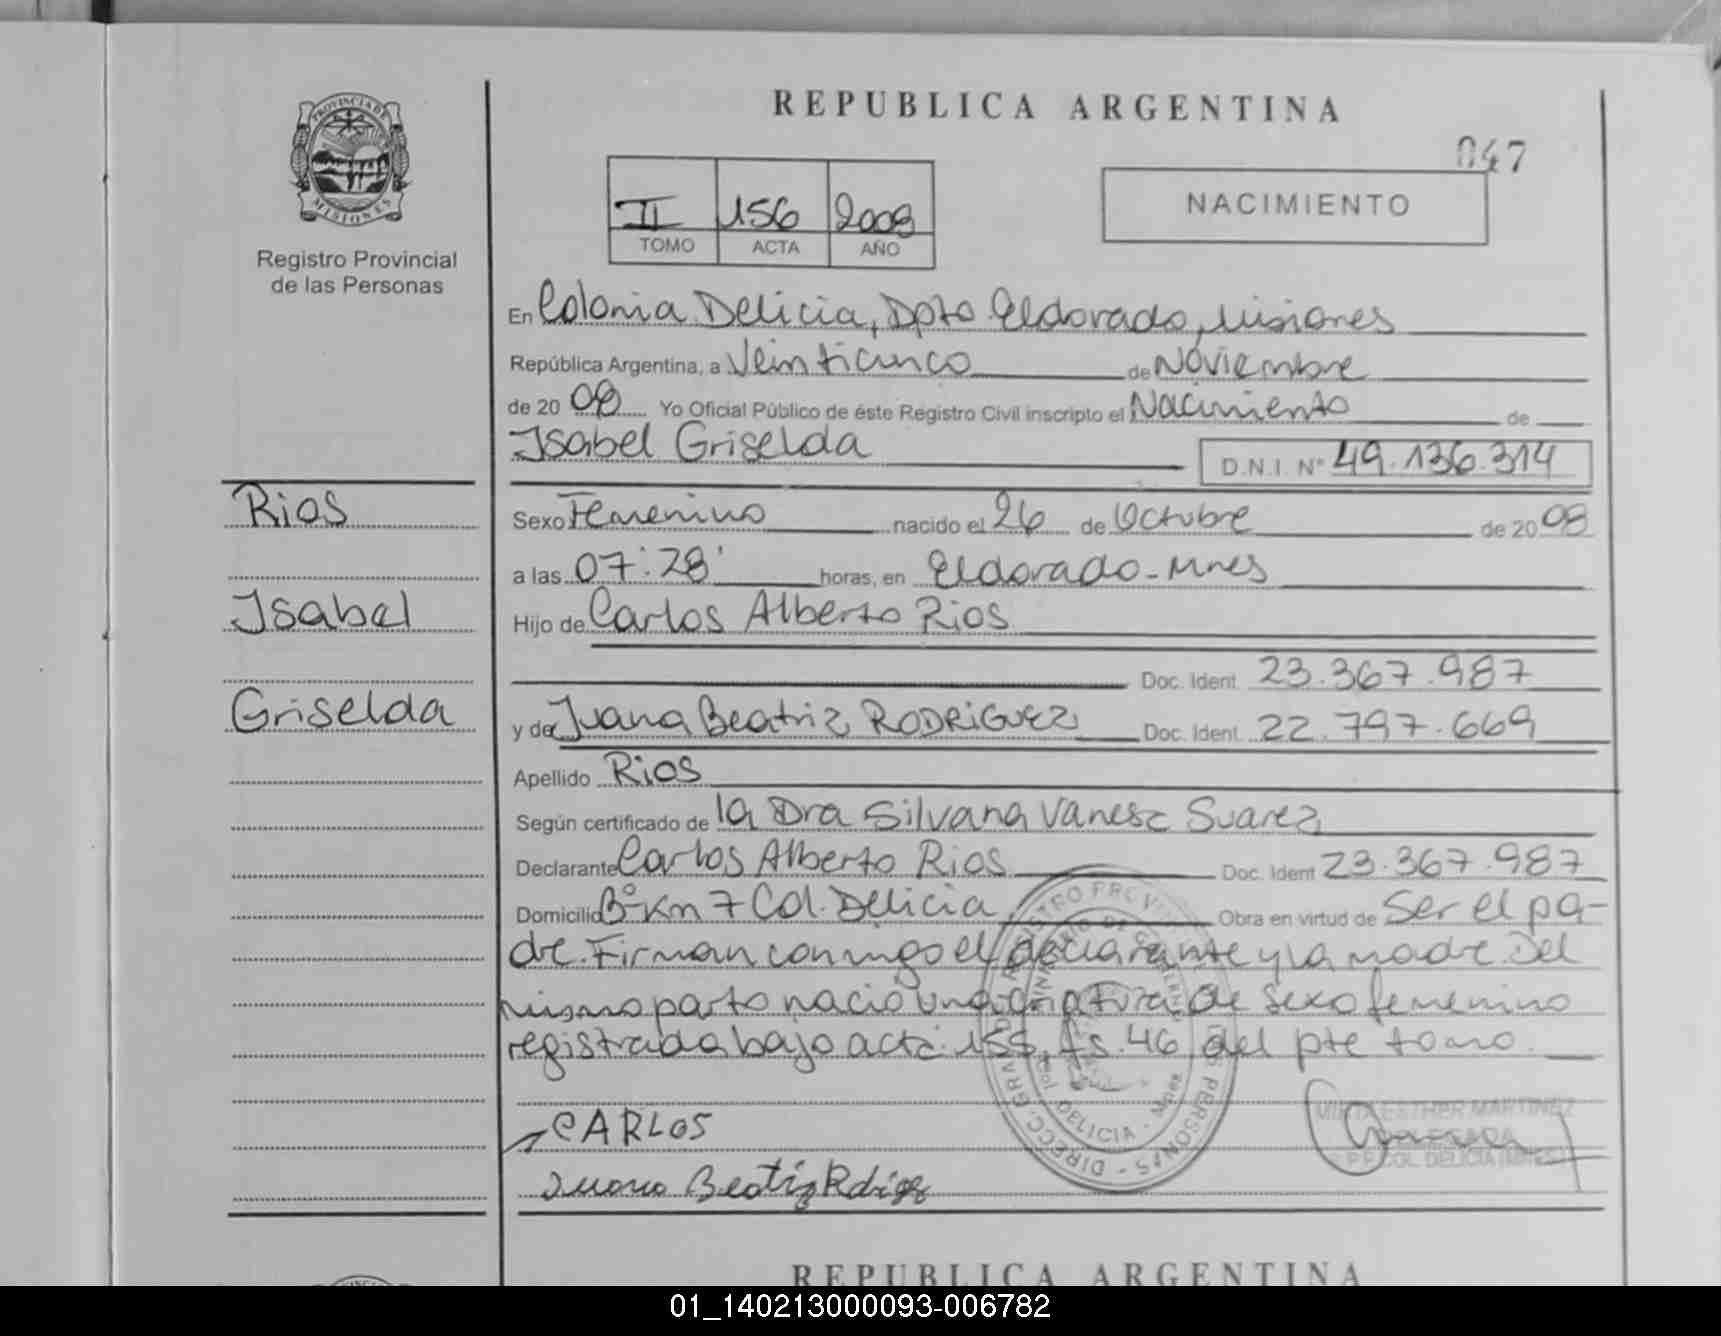 REPUBLICA ARGENTINA
047
PROVINCIA DE MISIONES
Registro Provincial
de las Personas
II 156 2008
TOMO ACTA AÑO
NACIMIENTO
En Colonia Delicia, Dpto Eldorado, Misiones
República Argentina, a Veinticinco de Noviembre
de 20 08 Yo Oficial Público de éste Registro Civil inscripto el Nacimiento de
Isabel Griselda D.N.I. Nº 49.136.314
Rios
Isabel
Griselda
Sexo Femenino nacido el 26 de Octubre de 20 08
a las 07:28' horas, en Eldorado-Mnes
Hijo de Carlos Alberto Rios
Doc. Ident. 23.367.987
y de Juana Beatriz RODRIGUEZ Doc. Ident. 22.797.669
Apellido Rios
Según certificado de la Dra Silvana Vanesa Suarez
Declarante Carlos Alberto Rios Doc. Ident 23.367.987
Domicilio Bº Km 7 Col. Delicia Obra en virtud de Ser el pa-
dre. Firman conmigo el declarante y la madre. Del
mismo parto nació una criatura de sexo femenino
registrada bajo acta: 155, fs. 46 del pte tomo.
CARLOS
Juana Beatriz
MIRTA ESTHER MARTINEZ
COL. DELICIA (MNES)
DELICIA - Mnes
REPUBLICA ARGENTINA
01_140213000093-006782